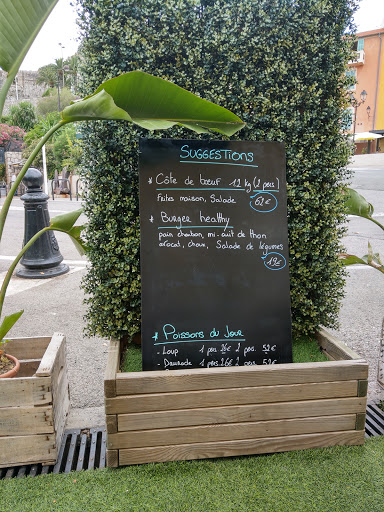 SUGGESTIONS
* Côte de bœuf 1,2 kg (2 pers)
Frites maison, Salade 62€
* Burger healthy
pain charbon, mi-cuit de thon
avocat, choux, Salade de légumes
19€
* Poissons du Jour
- Loup 1 pers 26€ 2 pers. 52€
- Daurade 1 pers 26€ 2 pers. 52€